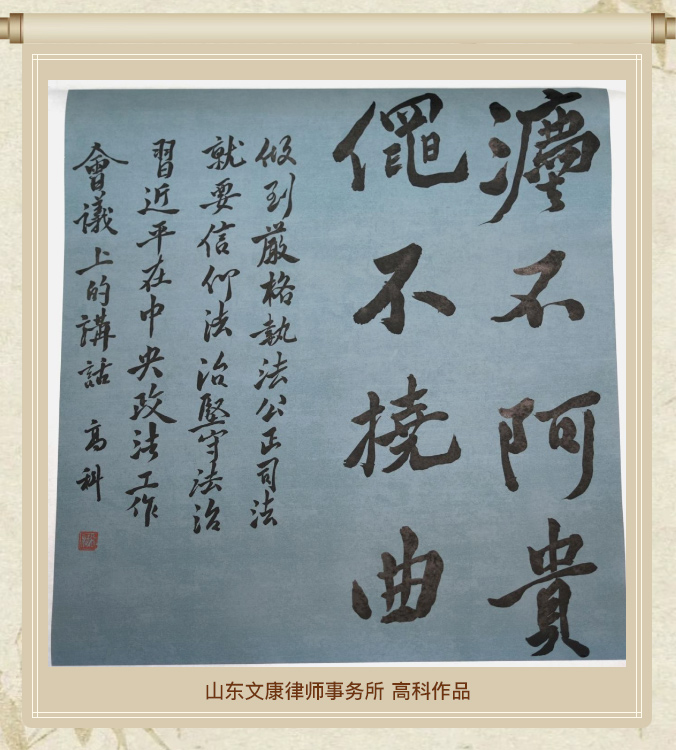 灋不阿貴
繩不撓曲
做到嚴格執法公正司法
就要信仰法治堅守法治
習近平在中央政法工作
會議上的講話 高科
山东文康律师事务所 高科作品